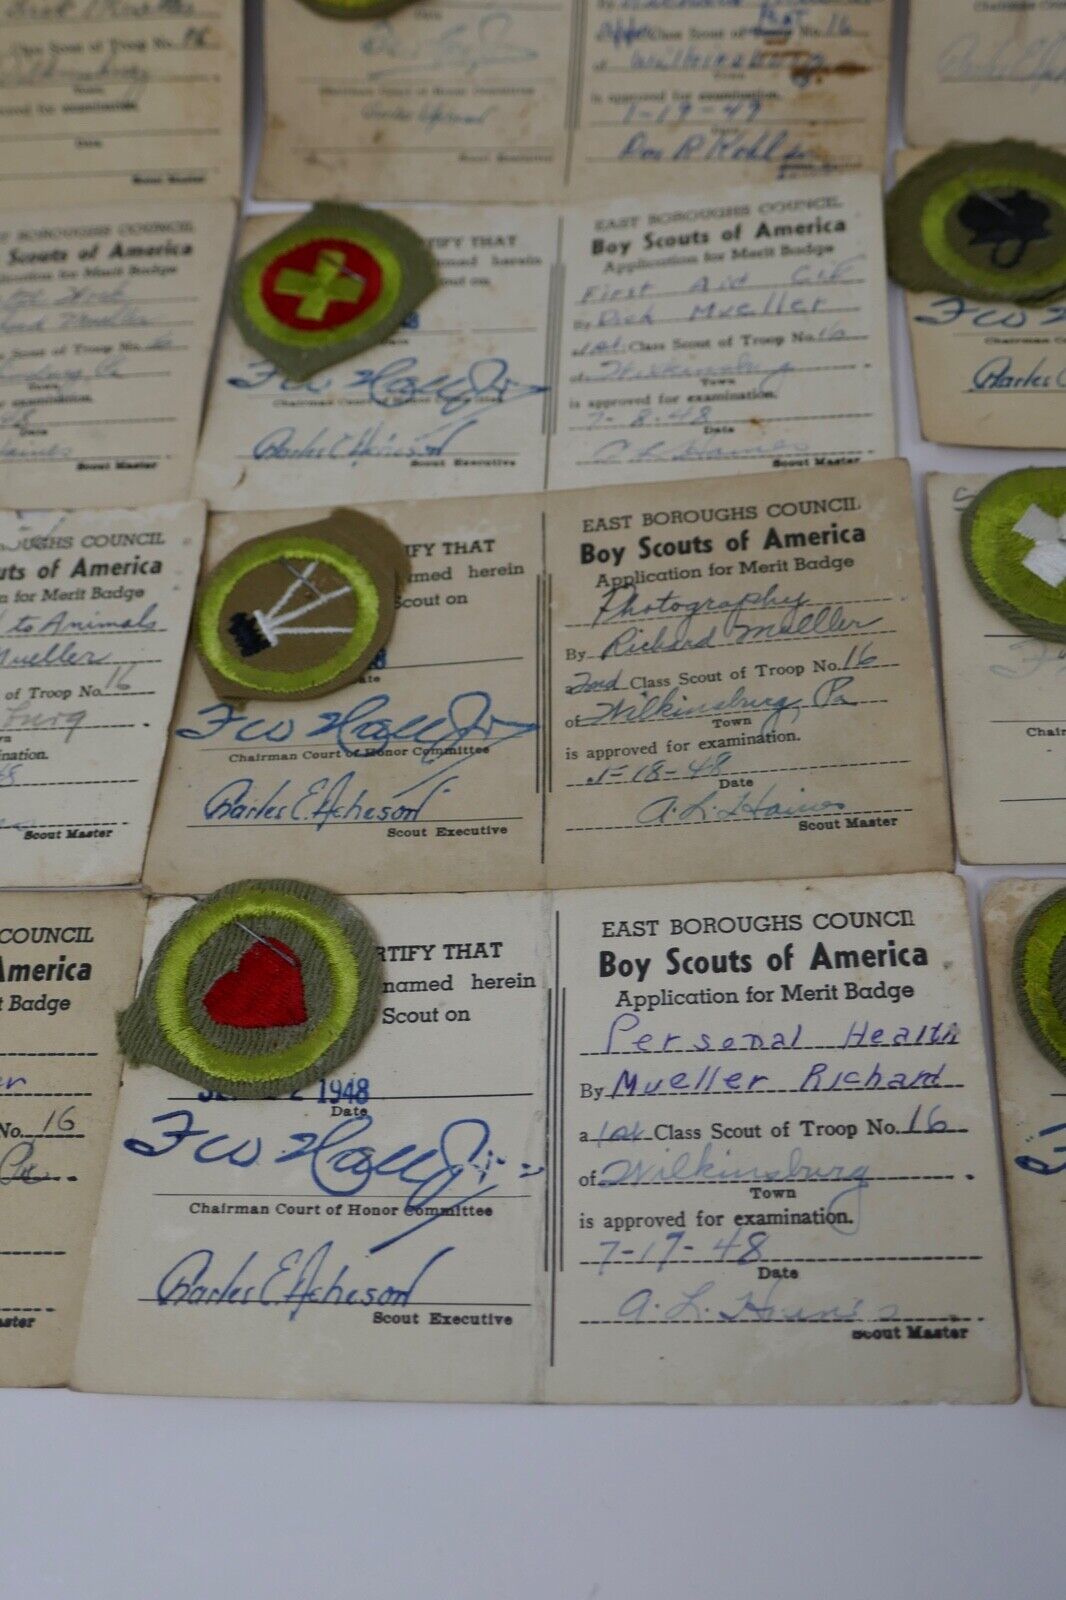 Class Scout of Troop No. 16
Town
approved for examination.
Date
Scout Master
Date
Chairman Court of Honor Committee
Scout Executive
By
Class Scout of Troop No. 16
of Wilkinsburg
Town
is approved for examination.
1-19-49
Don R Kohl
BOROUGHS COUNCIL
Scouts of America
Application for Merit Badge
Mueller
Scout of Troop No. 16
Town
for examination.
48
Date
Haines
Scout Master
CERTIFY THAT
named herein
Scout on
Date
Chairman Court of Honor Committee
Charles E Acheson
Scout Executive
EAST BOROUGHS COUNCIL
Boy Scouts of America
Application for Merit Badge
First Aid
By Dick Mueller
a 1st Class Scout of Troop No. 16
of Wilkinsburg
Town
is approved for examination.
7-8-48
Date
A L Haines
Scout Master
Chairman
Charles E
BOROUGHS COUNCIL
Scouts of America
Application for Merit Badge
to Animals
Mueller
of Troop No. 16
burg
Town
examination.
48
Date
Scout Master
CERTIFY THAT
named herein
Scout on
48
Chairman Court of Honor Committee
Charles E. Acheson
Scout Executive
EAST BOROUGHS COUNCIL
Boy Scouts of America
Application for Merit Badge
Photography
By Richard Mueller
a 2nd Class Scout of Troop No. 16
of Wilkinsburg, Pa
Town
is approved for examination.
1-18-48
Date
A. L. Haines
Scout Master
Chair
COUNCIL
America
Badge
er
No. 16
Pa.
Master
CERTIFY THAT
named herein
Scout on
1948
Date
Chairman Court of Honor Committee
Charles E. Acheson
Scout Executive
EAST BOROUGHS COUNCIL
Boy Scouts of America
Application for Merit Badge
Personal Health
By Mueller Richard
a 1st Class Scout of Troop No. 16
of Wilkinsburg
Town
is approved for examination.
7-17-48
Date
A. L. Haines
Scout Master